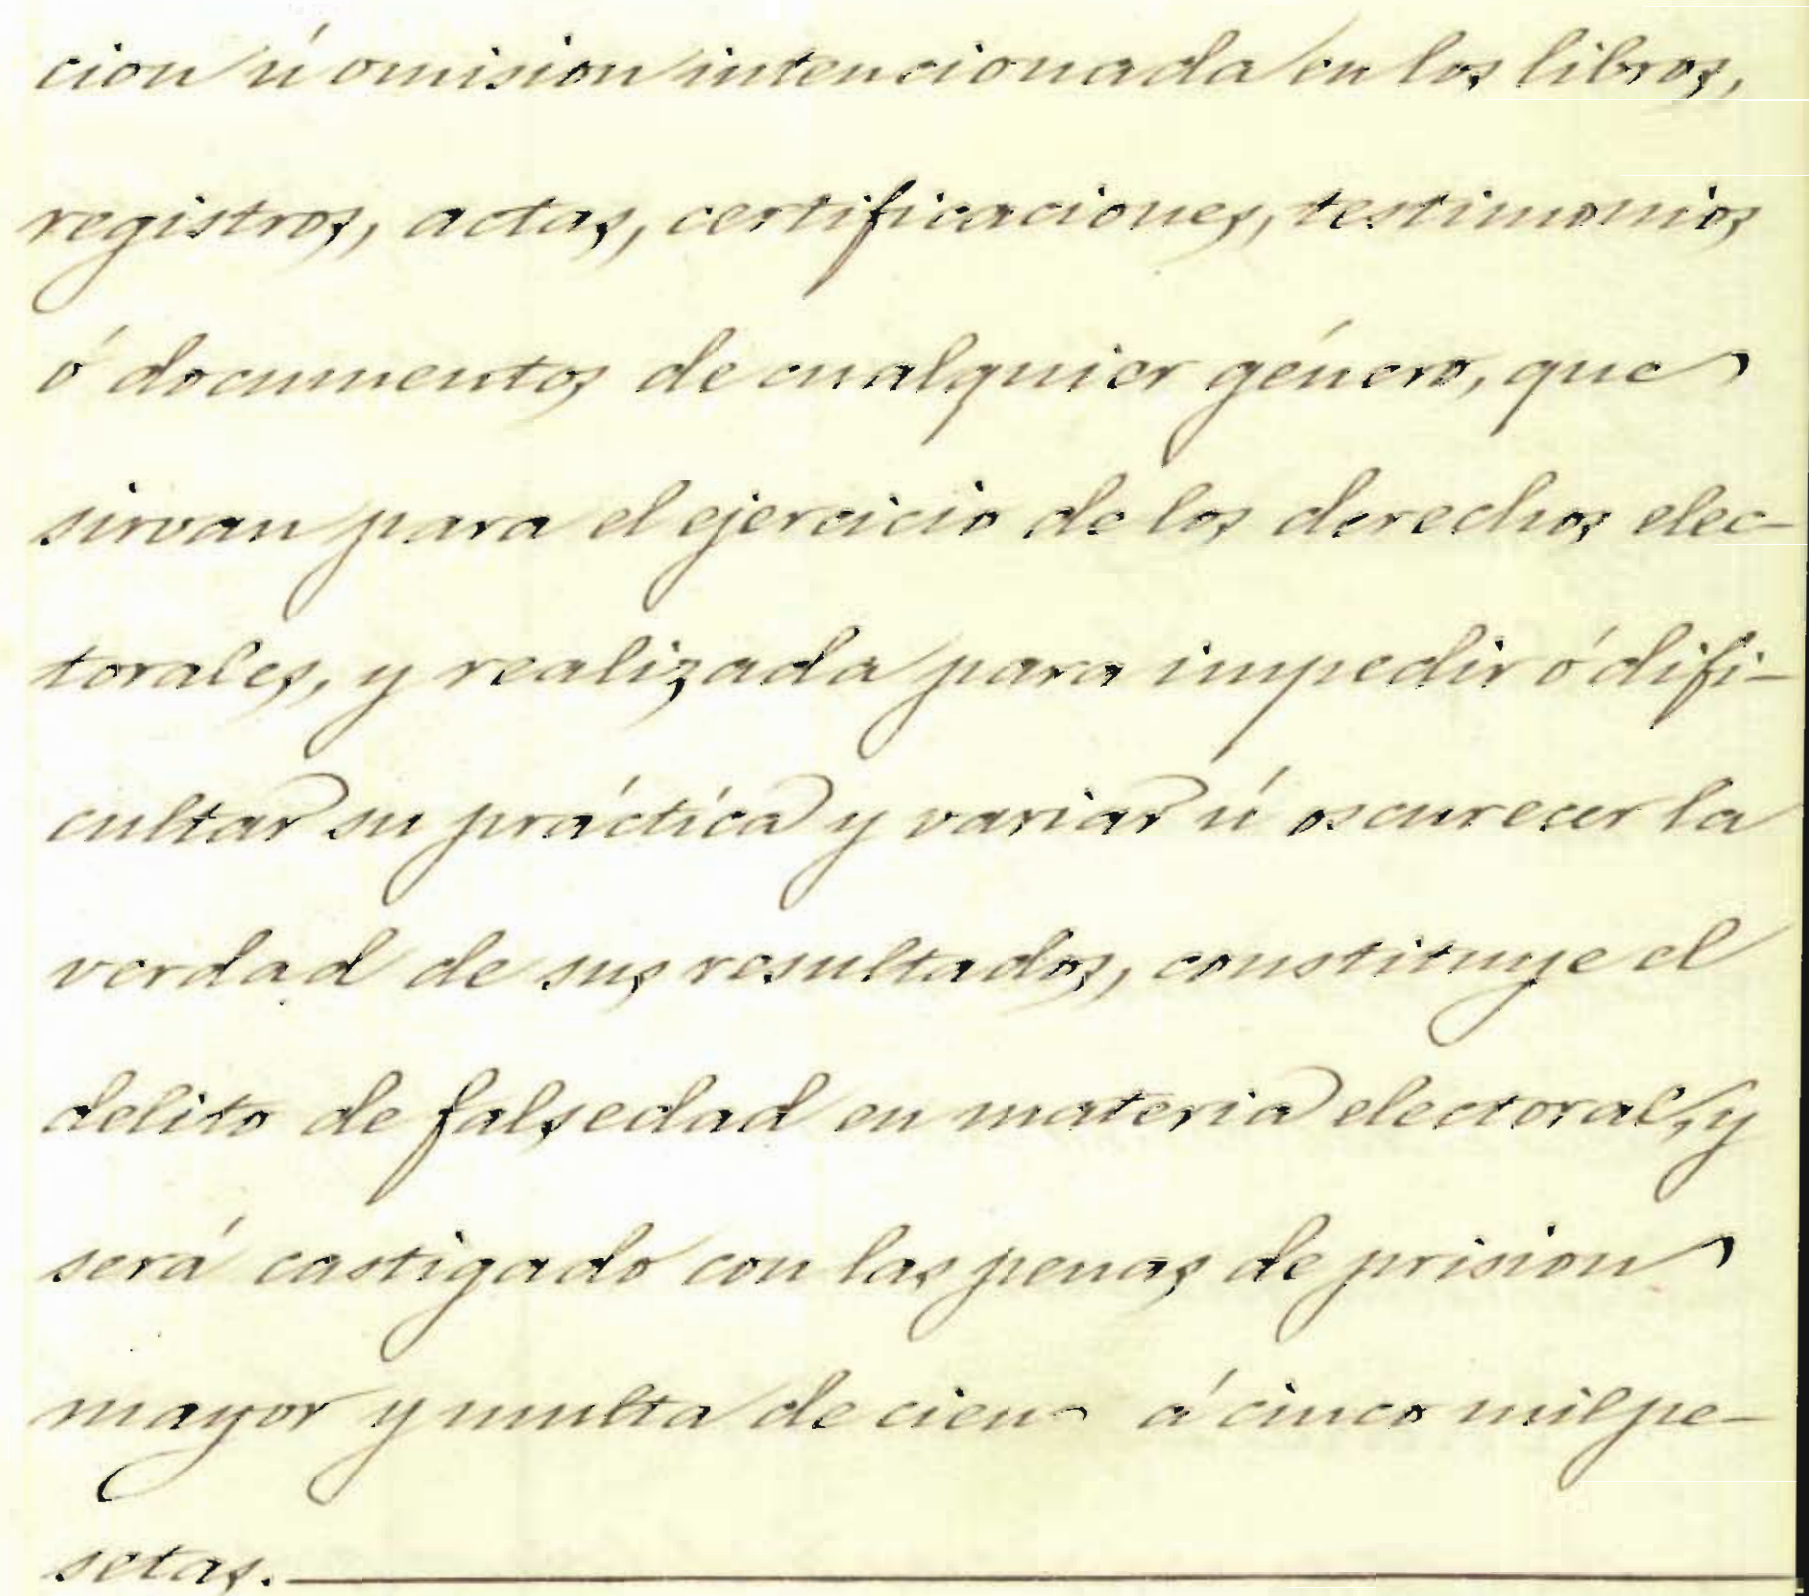 cion ú omision intencionada en los libros,
registros, actas, certificaciones, testimonios
ó documentos de cualquier género, que
sirvan para el ejercicio de los derechos elec-
torales, y realizada para impedir ó difi-
cultar su práctica y variar ú oscurecer la
verdad de sus resultados, constituye el
delito de falsedad en materia electoral, y
será castigado con las penas de prision
mayor y multa de cien á cinco mil pe-
setas.